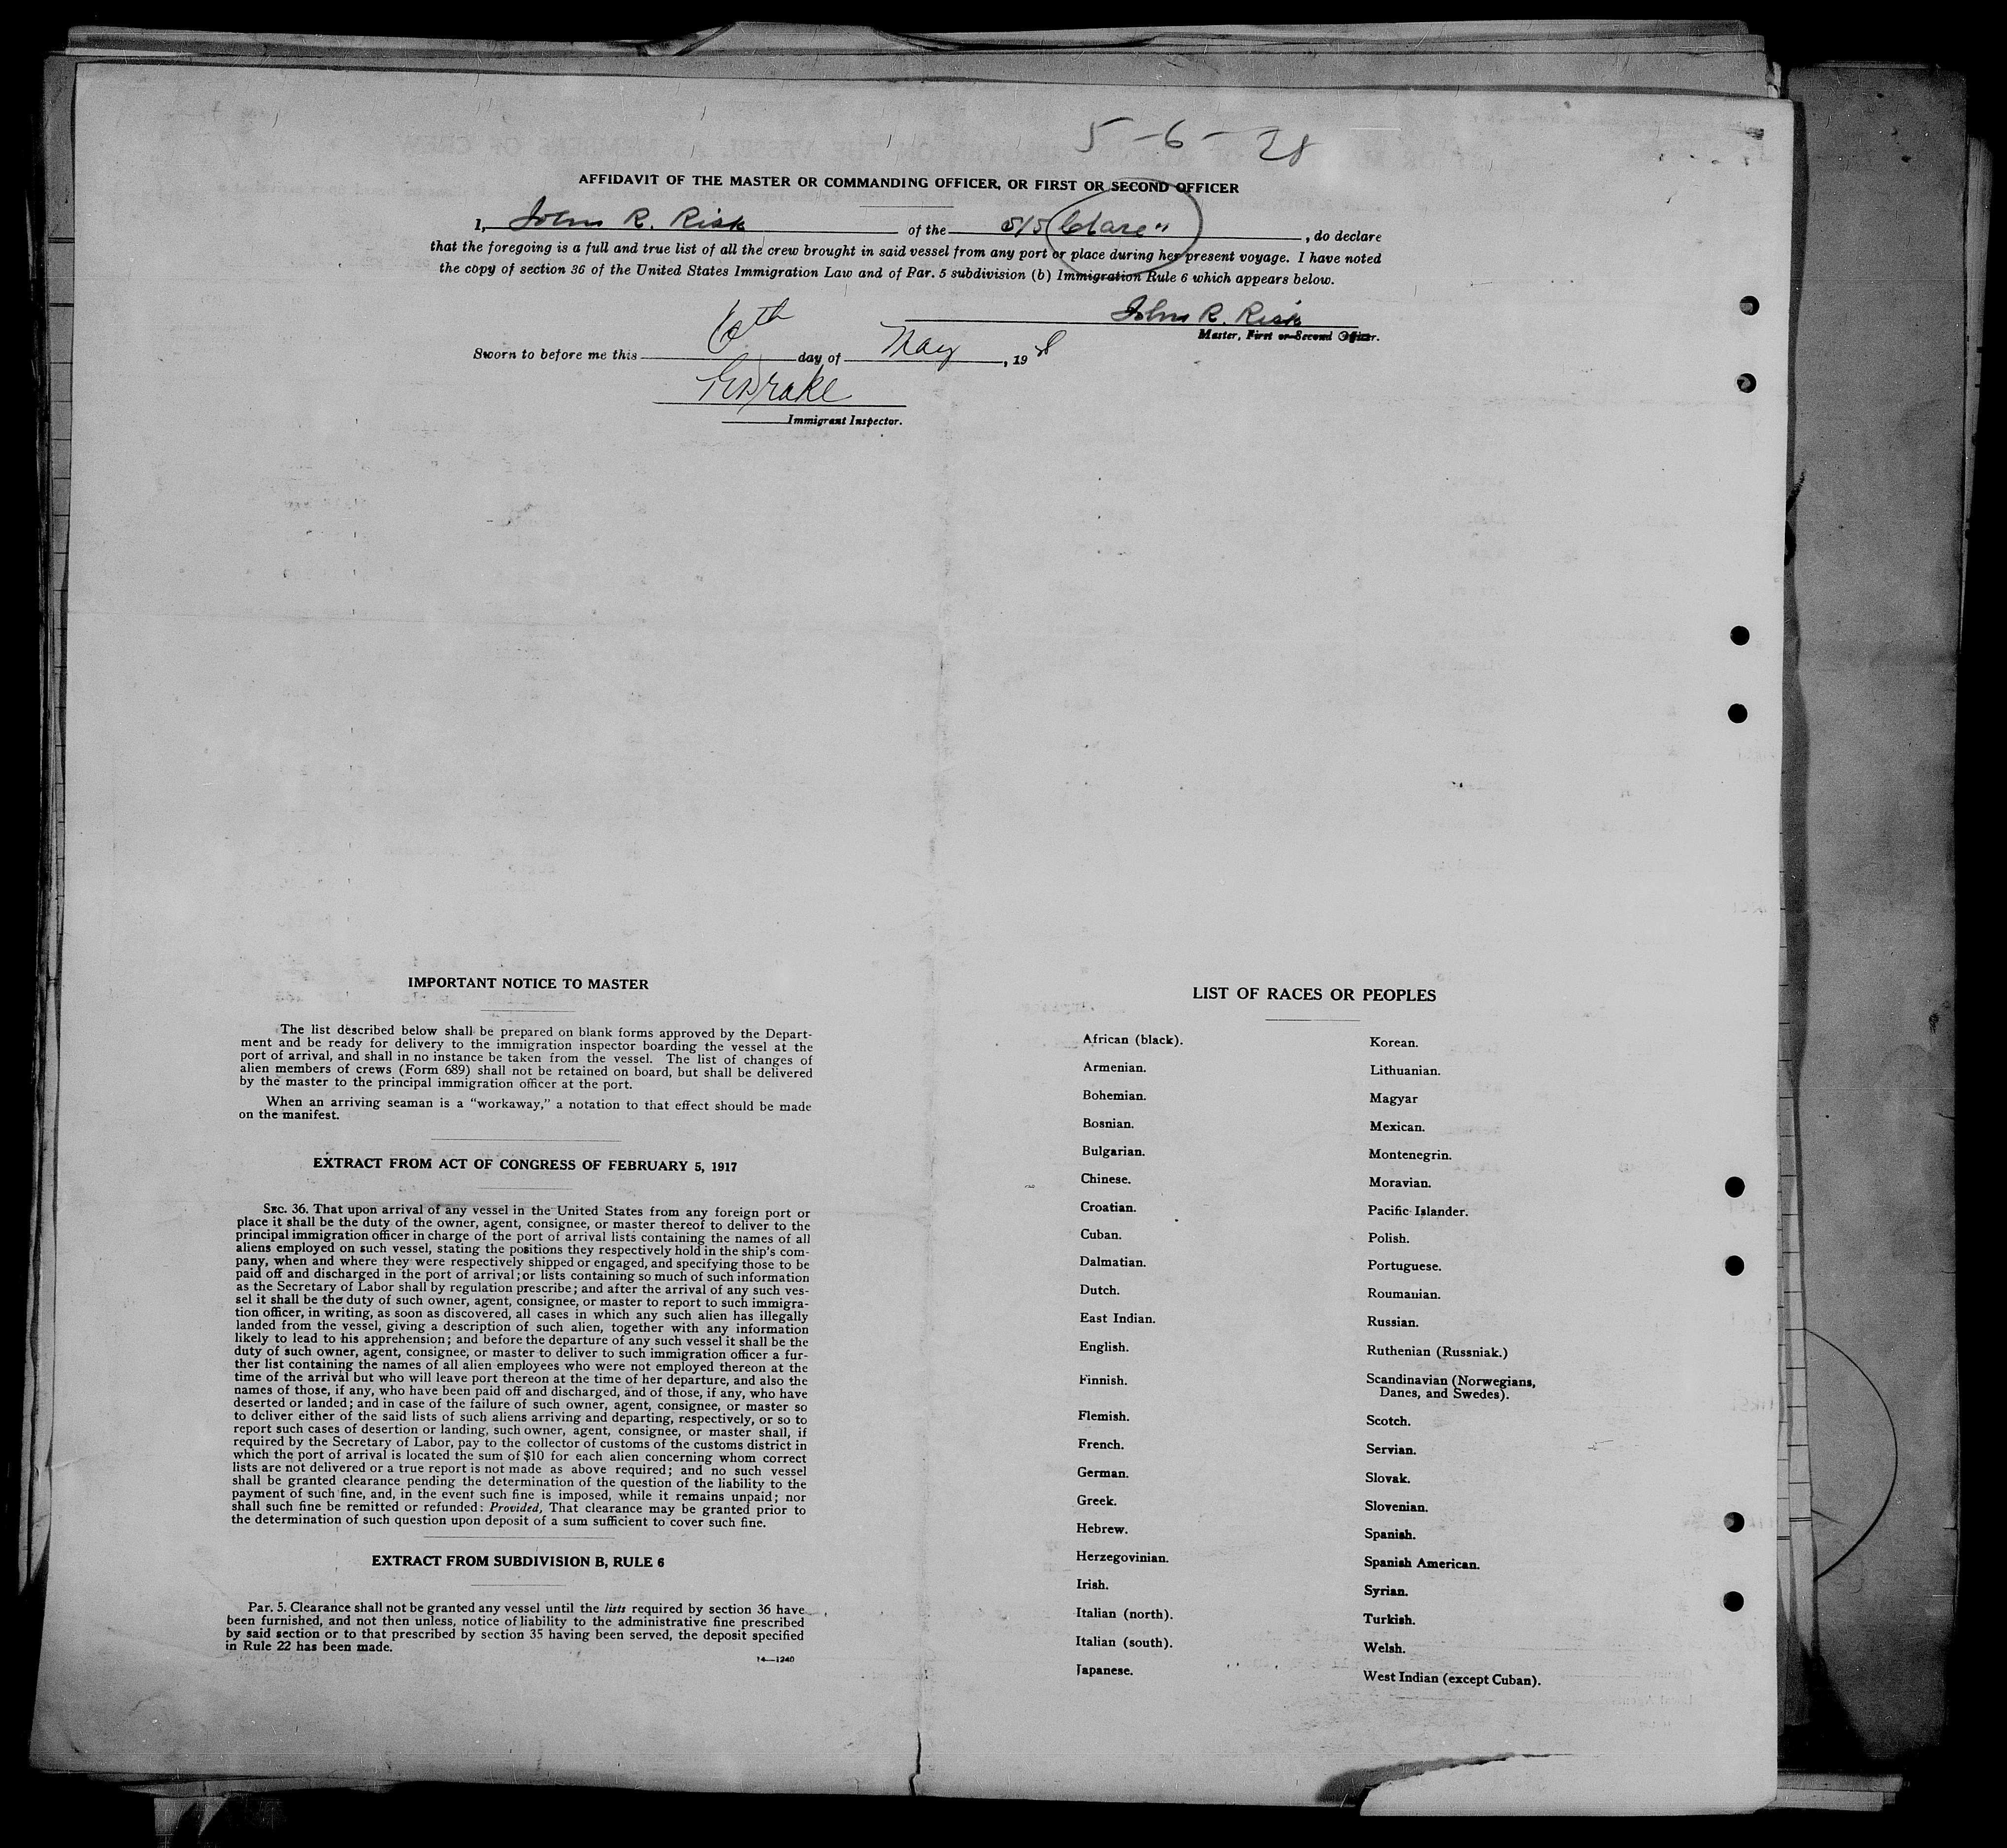 5-6-28
AFFIDAVIT OF THE MASTER OR COMMANDING OFFICER, OR FIRST OR SECOND OFFICER
I, John R. Risk of the S/S "Clare" , do declare
that the foregoing is a full and true list of all the crew brought in said vessel from any port or place during her present voyage. I have noted
the copy of section 36 of the United States Immigration Law and of Par. 5 subdivision (b) Immigration Rule 6 which appears below.
John R. Risk
Master, First or Second Officer.
Sworn to before me this 6th day of May, 19 8
Drake
Immigrant Inspector.
IMPORTANT NOTICE TO MASTER
The list described below shall be prepared on blank forms approved by the Depart-
ment and be ready for delivery to the immigration inspector boarding the vessel at the
port of arrival, and shall in no instance be taken from the vessel. The list of changes of
alien members of crews (Form 689) shall not be retained on board, but shall be delivered
by the master to the principal immigration officer at the port.
When an arriving seaman is a "workaway," a notation to that effect should be made
on the manifest.
EXTRACT FROM ACT OF CONGRESS OF FEBRUARY 5, 1917
SEC. 36. That upon arrival of any vessel in the United States from any foreign port or
place it shall be the duty of the owner, agent, consignee, or master thereof to deliver to the
principal immigration officer in charge of the port of arrival lists containing the names of all
aliens employed on such vessel, stating the positions they respectively hold in the ship's com-
pany, when and where they were respectively shipped or engaged, and specifying those to be
paid off and discharged in the port of arrival; or lists containing so much of such information
as the Secretary of Labor shall by regulation prescribe; and after the arrival of any such ves-
sel it shall be the duty of such owner, agent, consignee, or master to report to such immigra-
tion officer, in writing, as soon as discovered, all cases in which any such alien has illegally
landed from the vessel, giving a description of such alien, together with any information
likely to lead to his apprehension; and before the departure of any such vessel it shall be the
duty of such owner, agent, consignee, or master to deliver to such immigration officer a fur-
ther list containing the names of all alien employees who were not employed thereon at the
time of the arrival but who will leave port thereon at the time of her departure, and also the
names of those, if any, who have been paid off and discharged, and of those, if any, who have
deserted or landed; and in case of the failure of such owner, agent, consignee, or master so
to deliver either of the said lists of such aliens arriving and departing, respectively, or so to
report such cases of desertion or landing, such owner, agent, consignee, or master shall, if
required by the Secretary of Labor, pay to the collector of customs of the customs district in
which the port of arrival is located the sum of $10 for each alien concerning whom correct
lists are not delivered or a true report is not made as above required; and no such vessel
shall be granted clearance pending the determination of the question of the liability to the
payment of such fine, and, in the event such fine is imposed, while it remains unpaid; nor
shall such fine be remitted or refunded: Provided, That clearance may be granted prior to
the determination of such question upon deposit of a sum sufficient to cover such fine.
EXTRACT FROM SUBDIVISION B, RULE 6
Par. 5. Clearance shall not be granted any vessel until the lists required by section 36 have
been furnished, and not then unless, notice of liability to the administrative fine prescribed
by said section or to that prescribed by section 35 having been served, the deposit specified
in Rule 22 has been made.
14—1240
LIST OF RACES OR PEOPLES
African (black).
Armenian.
Bohemian.
Bosnian.
Bulgarian.
Chinese.
Croatian.
Cuban.
Dalmatian.
Dutch.
East Indian.
English.
Finnish.
Flemish.
French.
German.
Greek.
Hebrew.
Herzegovinian.
Irish.
Italian (north).
Italian (south).
Japanese.
Korean.
Lithuanian.
Magyar
Mexican.
Montenegrin.
Moravian.
Pacific Islander.
Polish.
Portuguese.
Roumanian.
Russian.
Ruthenian (Russniak.)
Scandinavian (Norwegians,
Danes, and Swedes).
Scotch.
Servian.
Slovak.
Slovenian.
Spanish.
Spanish American.
Syrian.
Turkish.
Welsh.
West Indian (except Cuban).